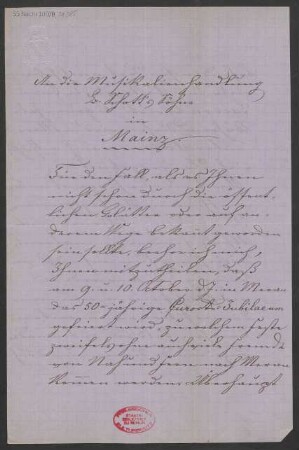 An die Musikalienhandlung
B. Schott's Söhne
in
Mainz.
Für den Fall, als es Ihnen
nicht schon durch die öffent-
lichen Blätter oder auf an-
derem Wege bekannt geworden
sein sollte, beehre ich mich,
Ihnen mitzutheilen, daß
am 9. u. 10. October d. J. in Meran
das 50-jährige Curorts-Jubilaeum
gefeiert wird, zu welchem Feste
zweifelsohne auch viele Freunde
von Nah und Fern nach Meran
kommen werden. Überhaupt